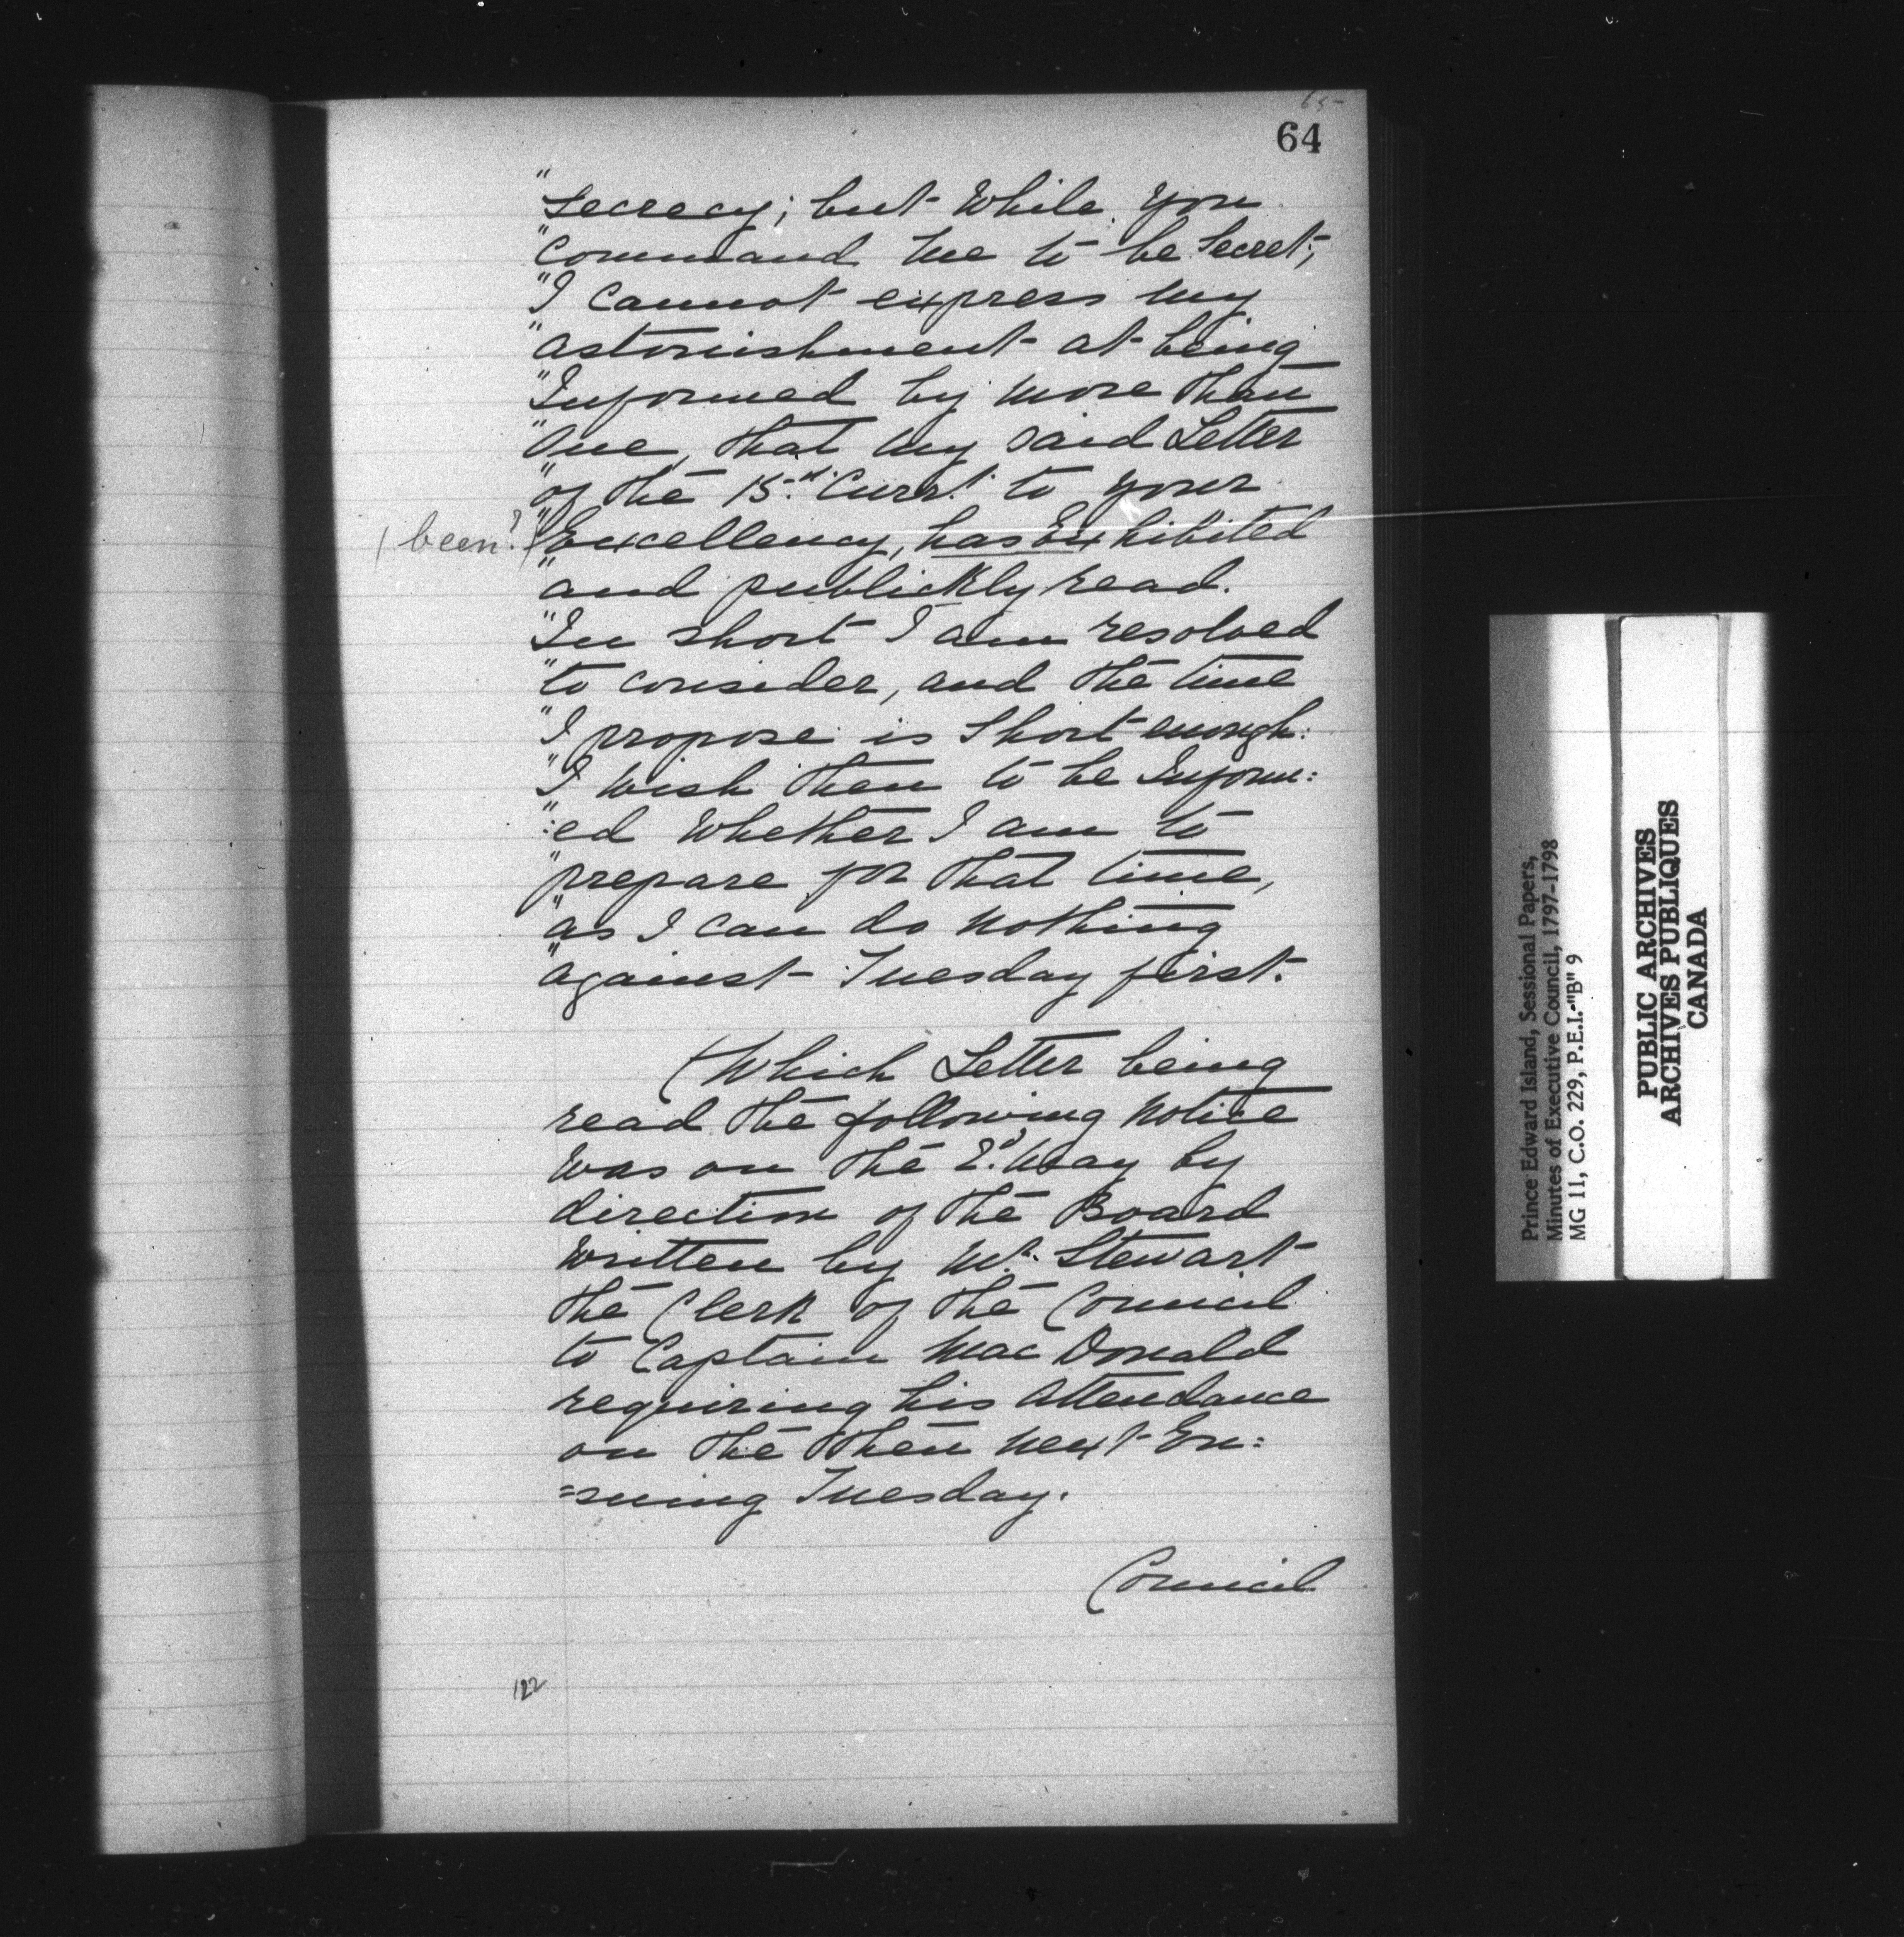 65
64
"secrecy; but While you
"Command me to be Secret;
"I Cannot express my
"astonishment at being
"Informed by more than
"One, that my said Letter
"of the 15th Currt. to your
(been?) "Excellency, has Exhibited
"and publickly read.
"In short I am resolved
"to consider, and the time
"I propose is Short enough:
"I Wish then to be Inform:
":ed Whether I am to
"prepare for that time,
"as I can do nothing
"against Tuesday first.
(Which Letter being
read the following Notice
Was on the 2d. May by
direction of the Board
Written by Mr. Stewart
the Clerk of the Council
to Captain Mac Donald
requiring his Attendance
on the then next En:
=suing Tuesday.
Council
122
Prince Edward Island, Sessional Papers,
Minutes of Executive Council, 1797-1798
MG 11, C.O. 229, P.E.I.-"B" 9
PUBLIC ARCHIVES
ARCHIVES PUBLIQUES
CANADA